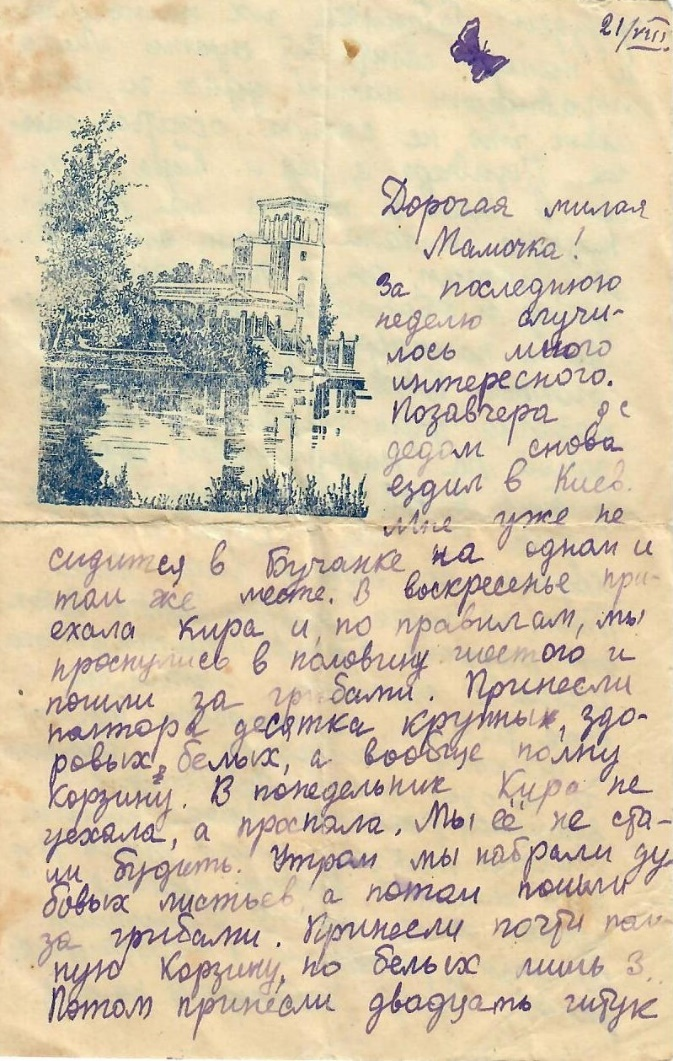 21/VIII
Дорогая милая
Мамочка!
За последнюю
неделю случи-
лось много
интересного.
Позавчера я с
дедом снова
ездил в Киев.
Мне уже не
сидится в Бучанке на одном и
том же месте. В воскресенье при-
ехала Кира и, по правилам, мы
проснулись в половину шестого и
пошли за грибами. Принесли
полтора десятка крупных, здо-
ровых, белых, а вообще полну
корзину. В понедельник Кира не
уехала, а проспала. Мы её не ста-
ли будить. Утром мы набрали ду-
бовых листьев, а потом пошли
за грибами. Принесли почти пол-
ную корзину, но белых лишь 3.
Потом принесли двадцать штук